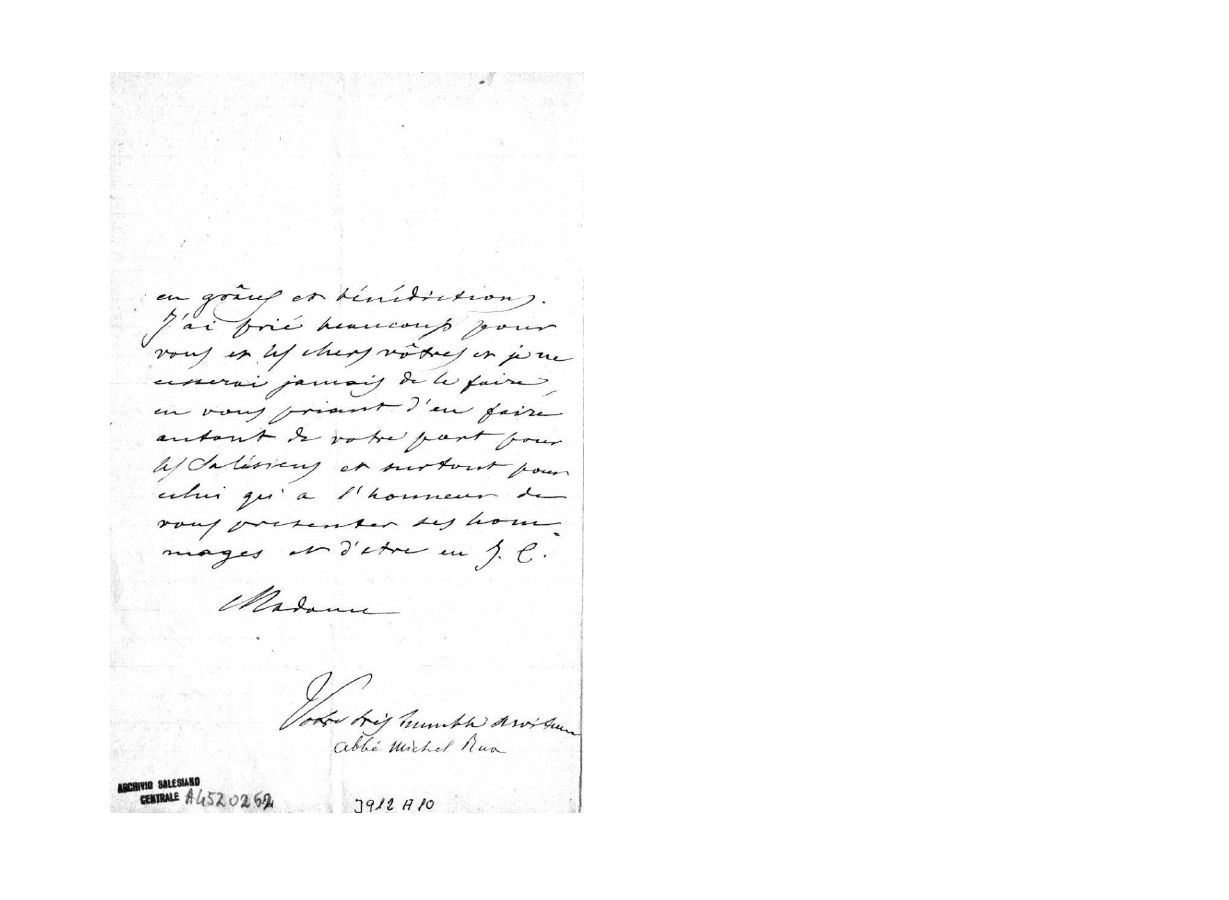 en grâces et bénédictions.
J'ai prié beaucoup pour
vous et les chers vôtres et je ne
cesserai jamais de le faire,
en vous priant d'en faire
autant de votre part pour
les Salésiens et surtout pour
celui qui a l'honneur de
vous presenter ses hom-
mages et d'etre en J. C.
Madame
Votre très humble serviteur
abbé Michel Rua
ARCHIVIO SALESIANO
CENTRALE A4520262
3912 A 10